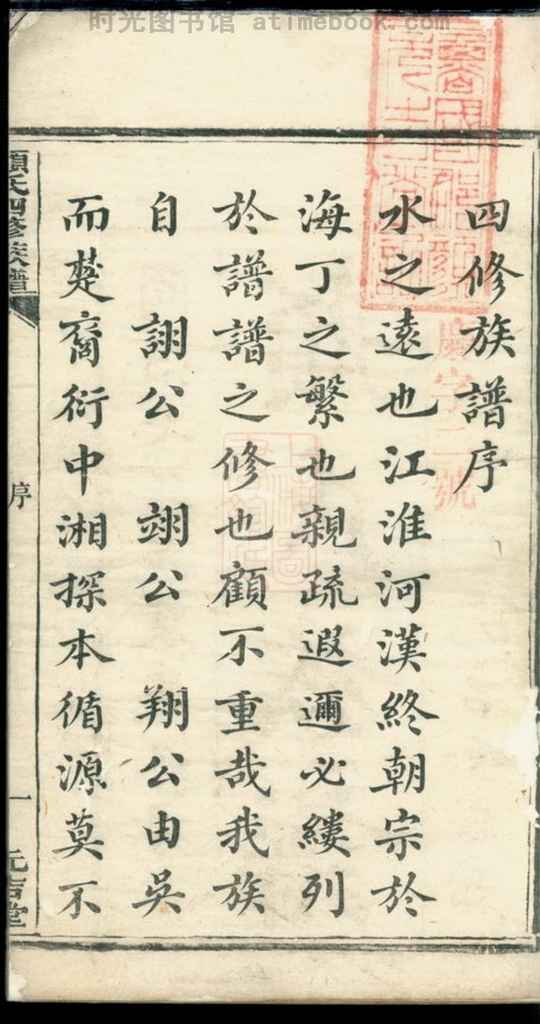 时光图书馆 atimebook.com
四修族譜序
水之遠也江淮河漢終朝宗於
海丁之繁也親疏遐邇必縷列
於譜譜之修也顧不重哉我族
自 詡公 翊公 翔公由吳
而楚裔衍中湘探本循源莫不
顏氏四修族譜
序
一
元吉堂
慶字二號